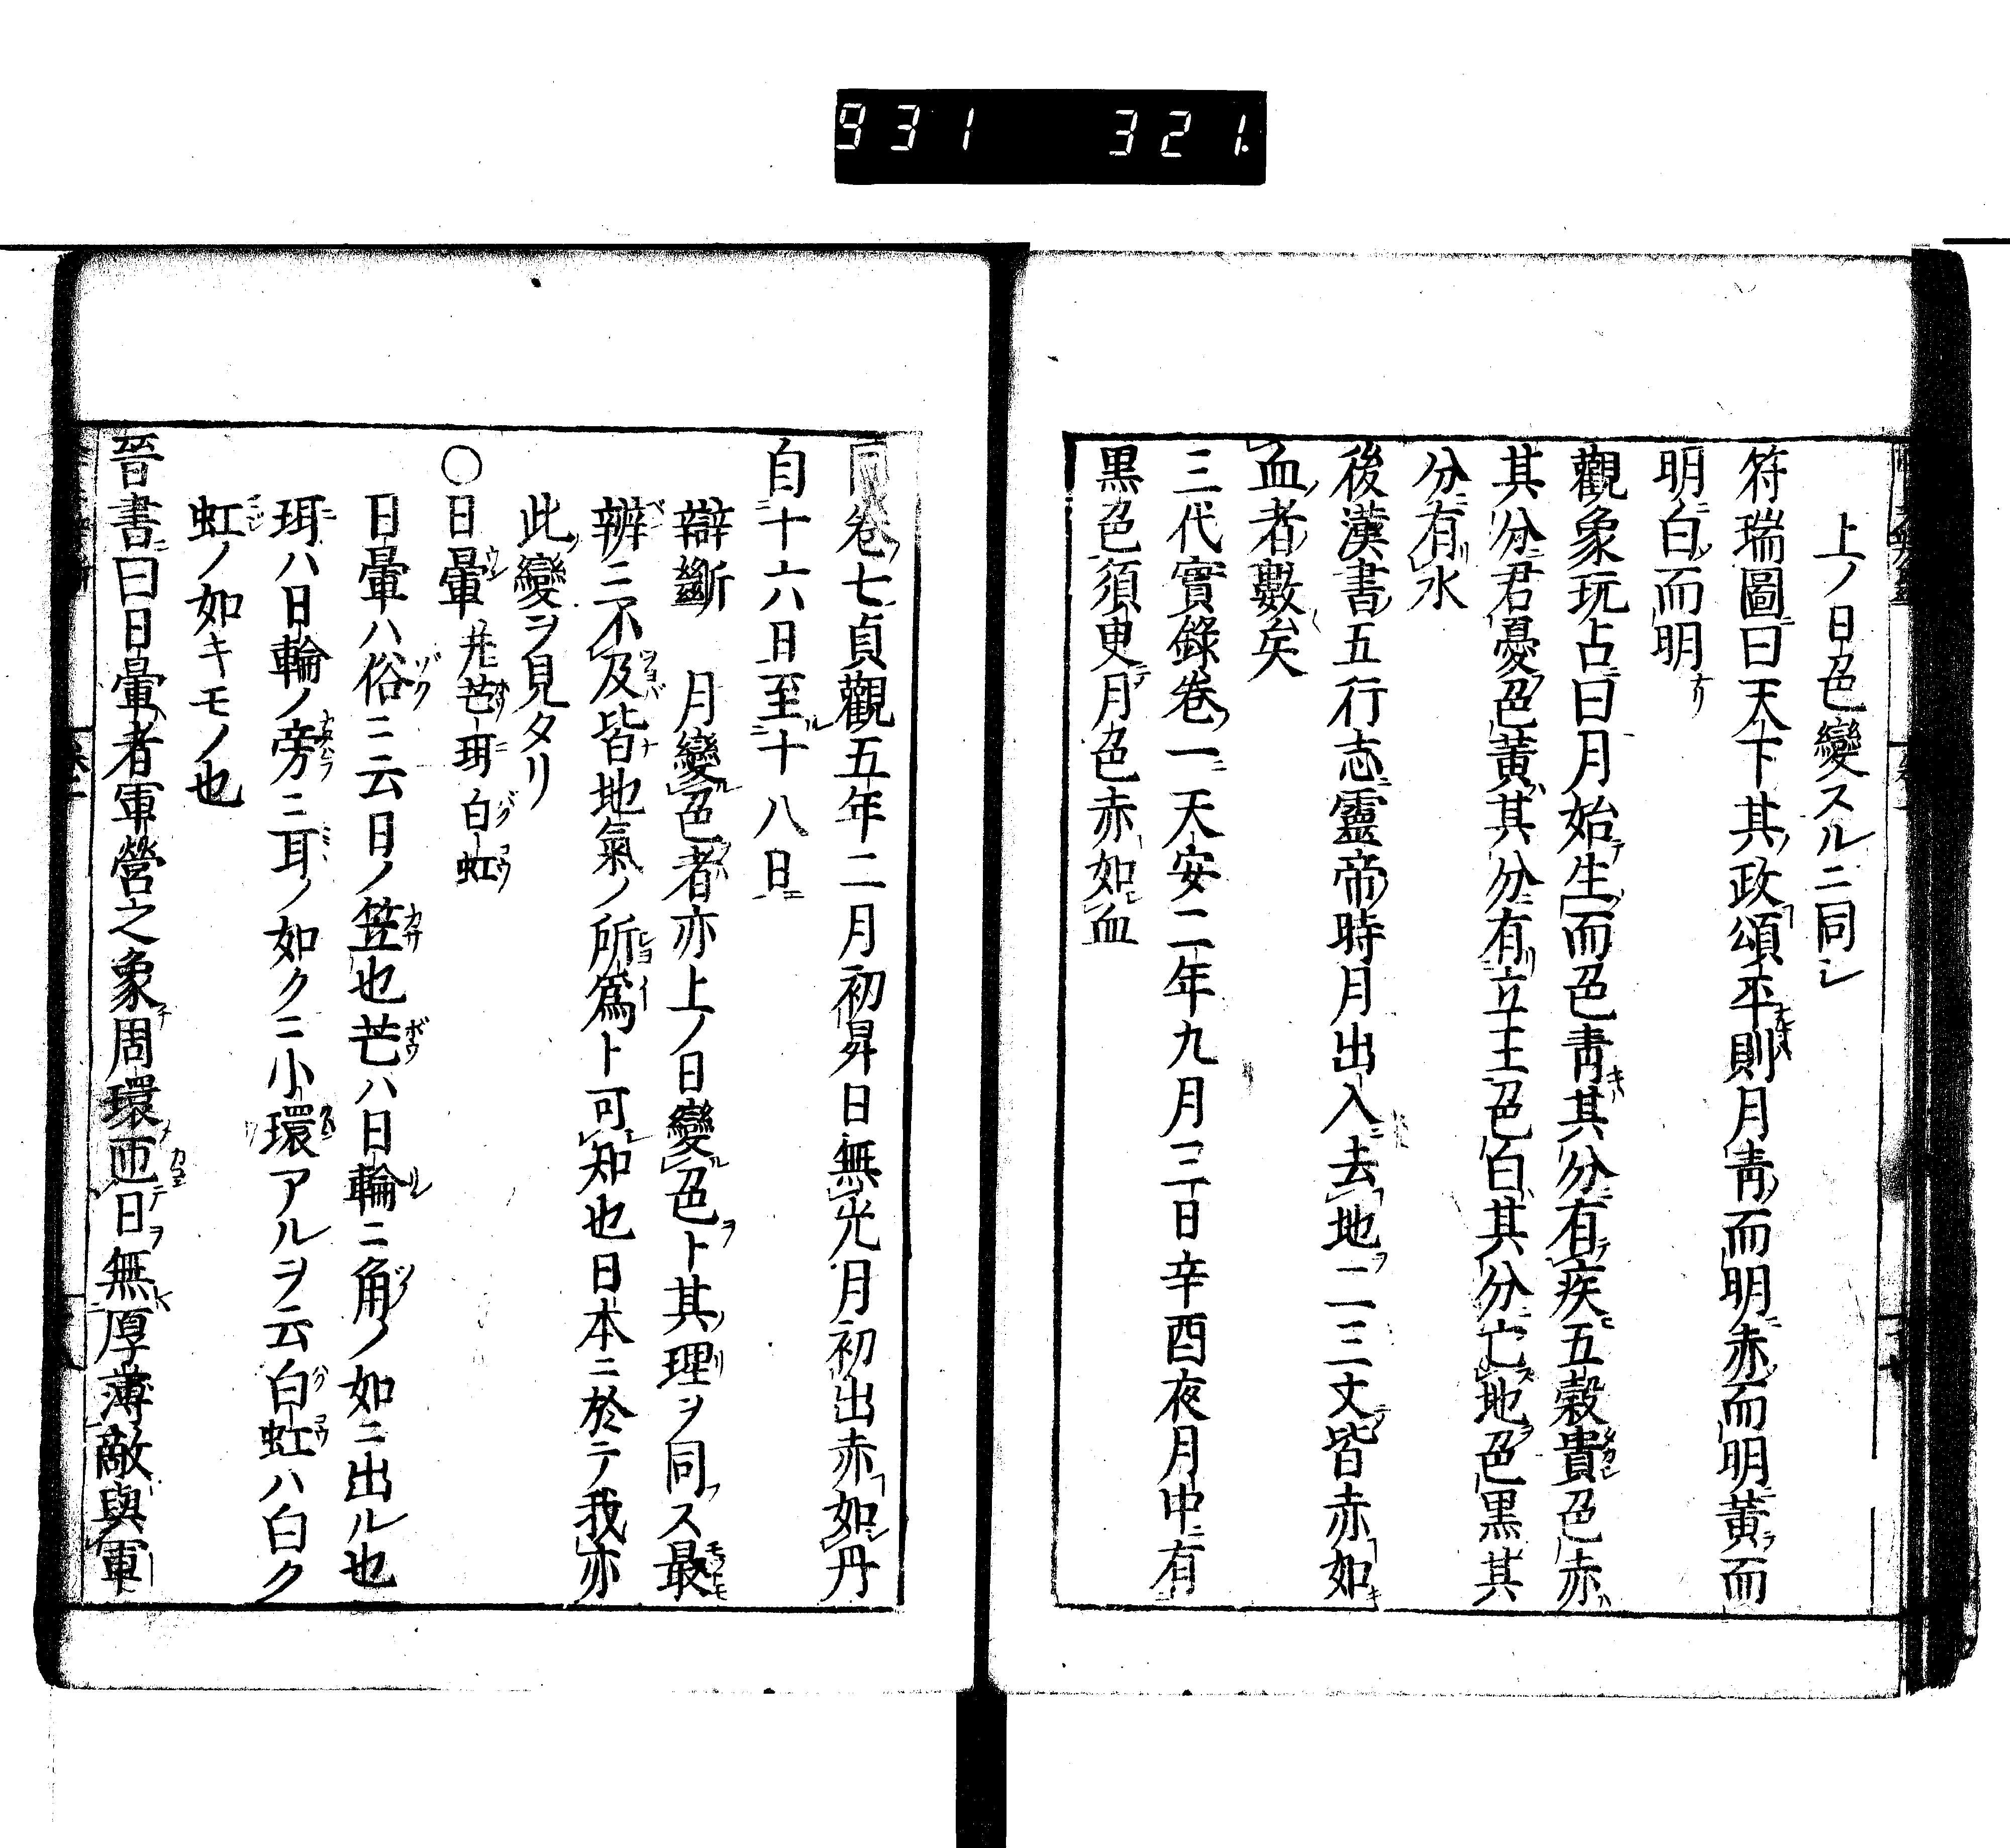 931 321.
上ノ日色變スルニ同シ
符瑞圖曰天下其政頌平則月靑而明赤而明黄而
明白而明
觀象玩占曰月始生而色靑其分有疾五穀貴色赤
其分君憂色黄其分有立王色白其分亡地色黒其
分有水
後漢書五行志靈帝時月出入去地二三丈皆赤如
血者數矣
三代實錄卷一天安二年九月三日辛酉夜月中有
黒色須臾月色赤如血
同卷七貞觀五年二月初昇日無光月初出赤如丹
自十六日至十八日
辯斷 月變色者亦上ノ日變色ト其理ヲ同ス最
辨ニ不及皆地氣ノ所爲ト可知也日本ニ於テ我亦
此變ヲ見タリ
〇日暈 并芒珥 白虹
日暈ハ俗ニ云日ノ笠也芒ハ日輪ニ角ノ如ニ出ル也
珥ハ日輪ノ旁ニ耳ノ如クニ小環アルヲ云白虹ハ白ク
虹ノ如キモノ也
晉書曰日暈者軍營之象周環匝日無厚薄敵與軍